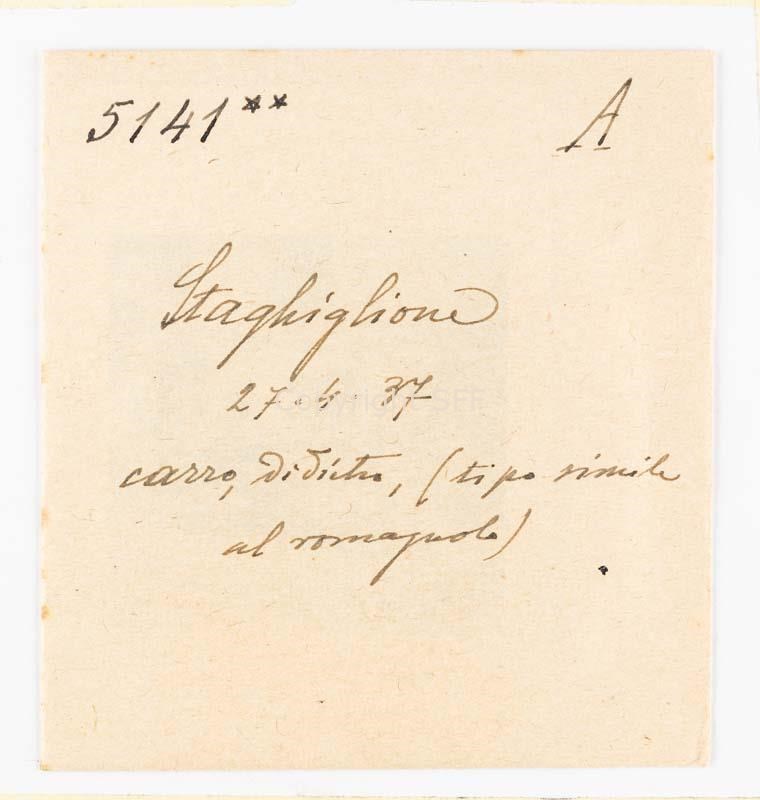 5141** A
Staghiglione
27 · 4 · 37
carro, di dietro, (tipo simile
al romagnolo)